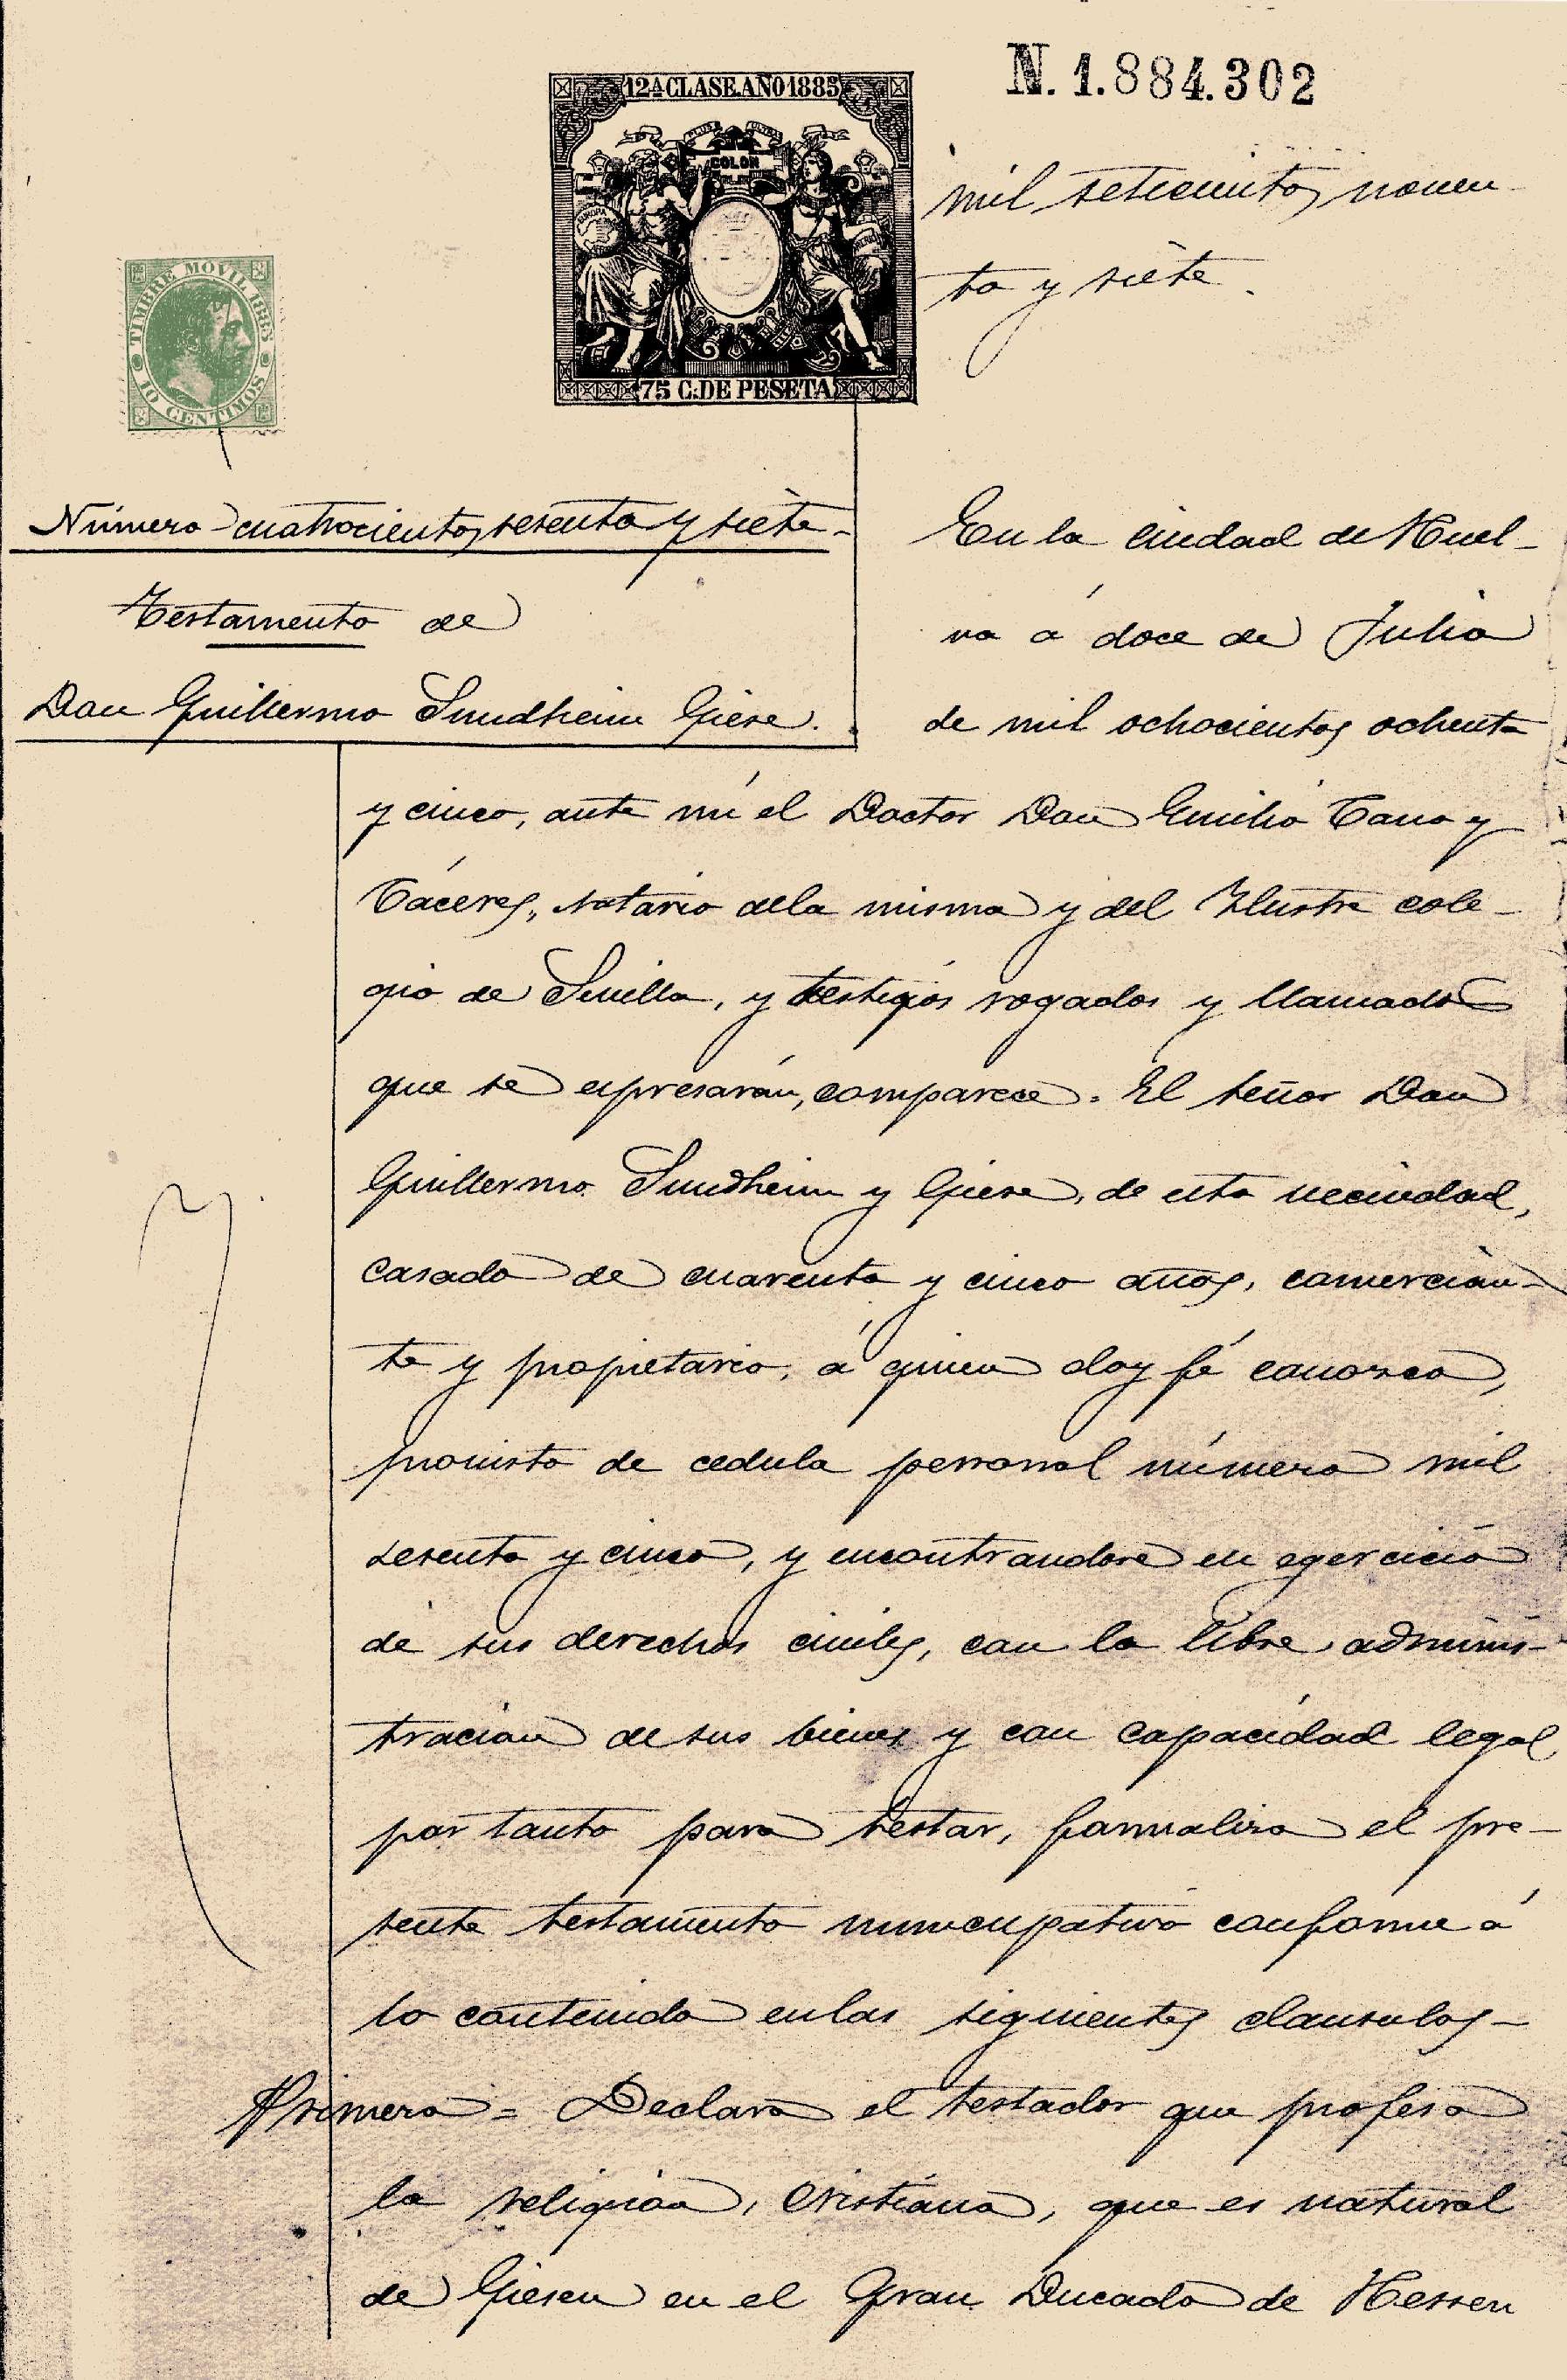 N. 1.884.302
12ª CLASE. AÑO 1885
PLUS ULTRA
COLON
EUROPA
75 C. DE PESETA
TIMBRE MOVIL 1885
10 CENTIMOS
mil setecientos noven
ta y siete.
Número cuatrocientos sesenta y siete-
Testamento de
Don Guillermo Sundheim Giese.
En la ciudad de Huel-
va á doce de Julio
de mil ochocientos ochenta
y cinco, ante mí el Doctor Don Emilio Cano y
Cáceres, notario dela misma y del Ilustre cole-
gio de Sevilla, y testigos rogados y llamados
que se espresarán, comparece. El señor Don
Guillermo Sundheim y Giese, de esta vecindad,
casado de cuarenta y cinco años, comercian-
te y propietario, á quien doy fé conozco,
provisto de cedula personal número mil
sesenta y cinco, y encontrandose en egercicio
de sus derechos civiles, con la libre adminis-
tracion de sus bienes y con capacidad legal
por tanto para testar, formaliza el pre-
sente testamento nuncupativo conforme á
lo contenido enlas siguientes clausulas-
Primera = Declara el testador que profesa
la religion, Cristiana, que es natural
de Giesen en el Gran Ducado de Hessen